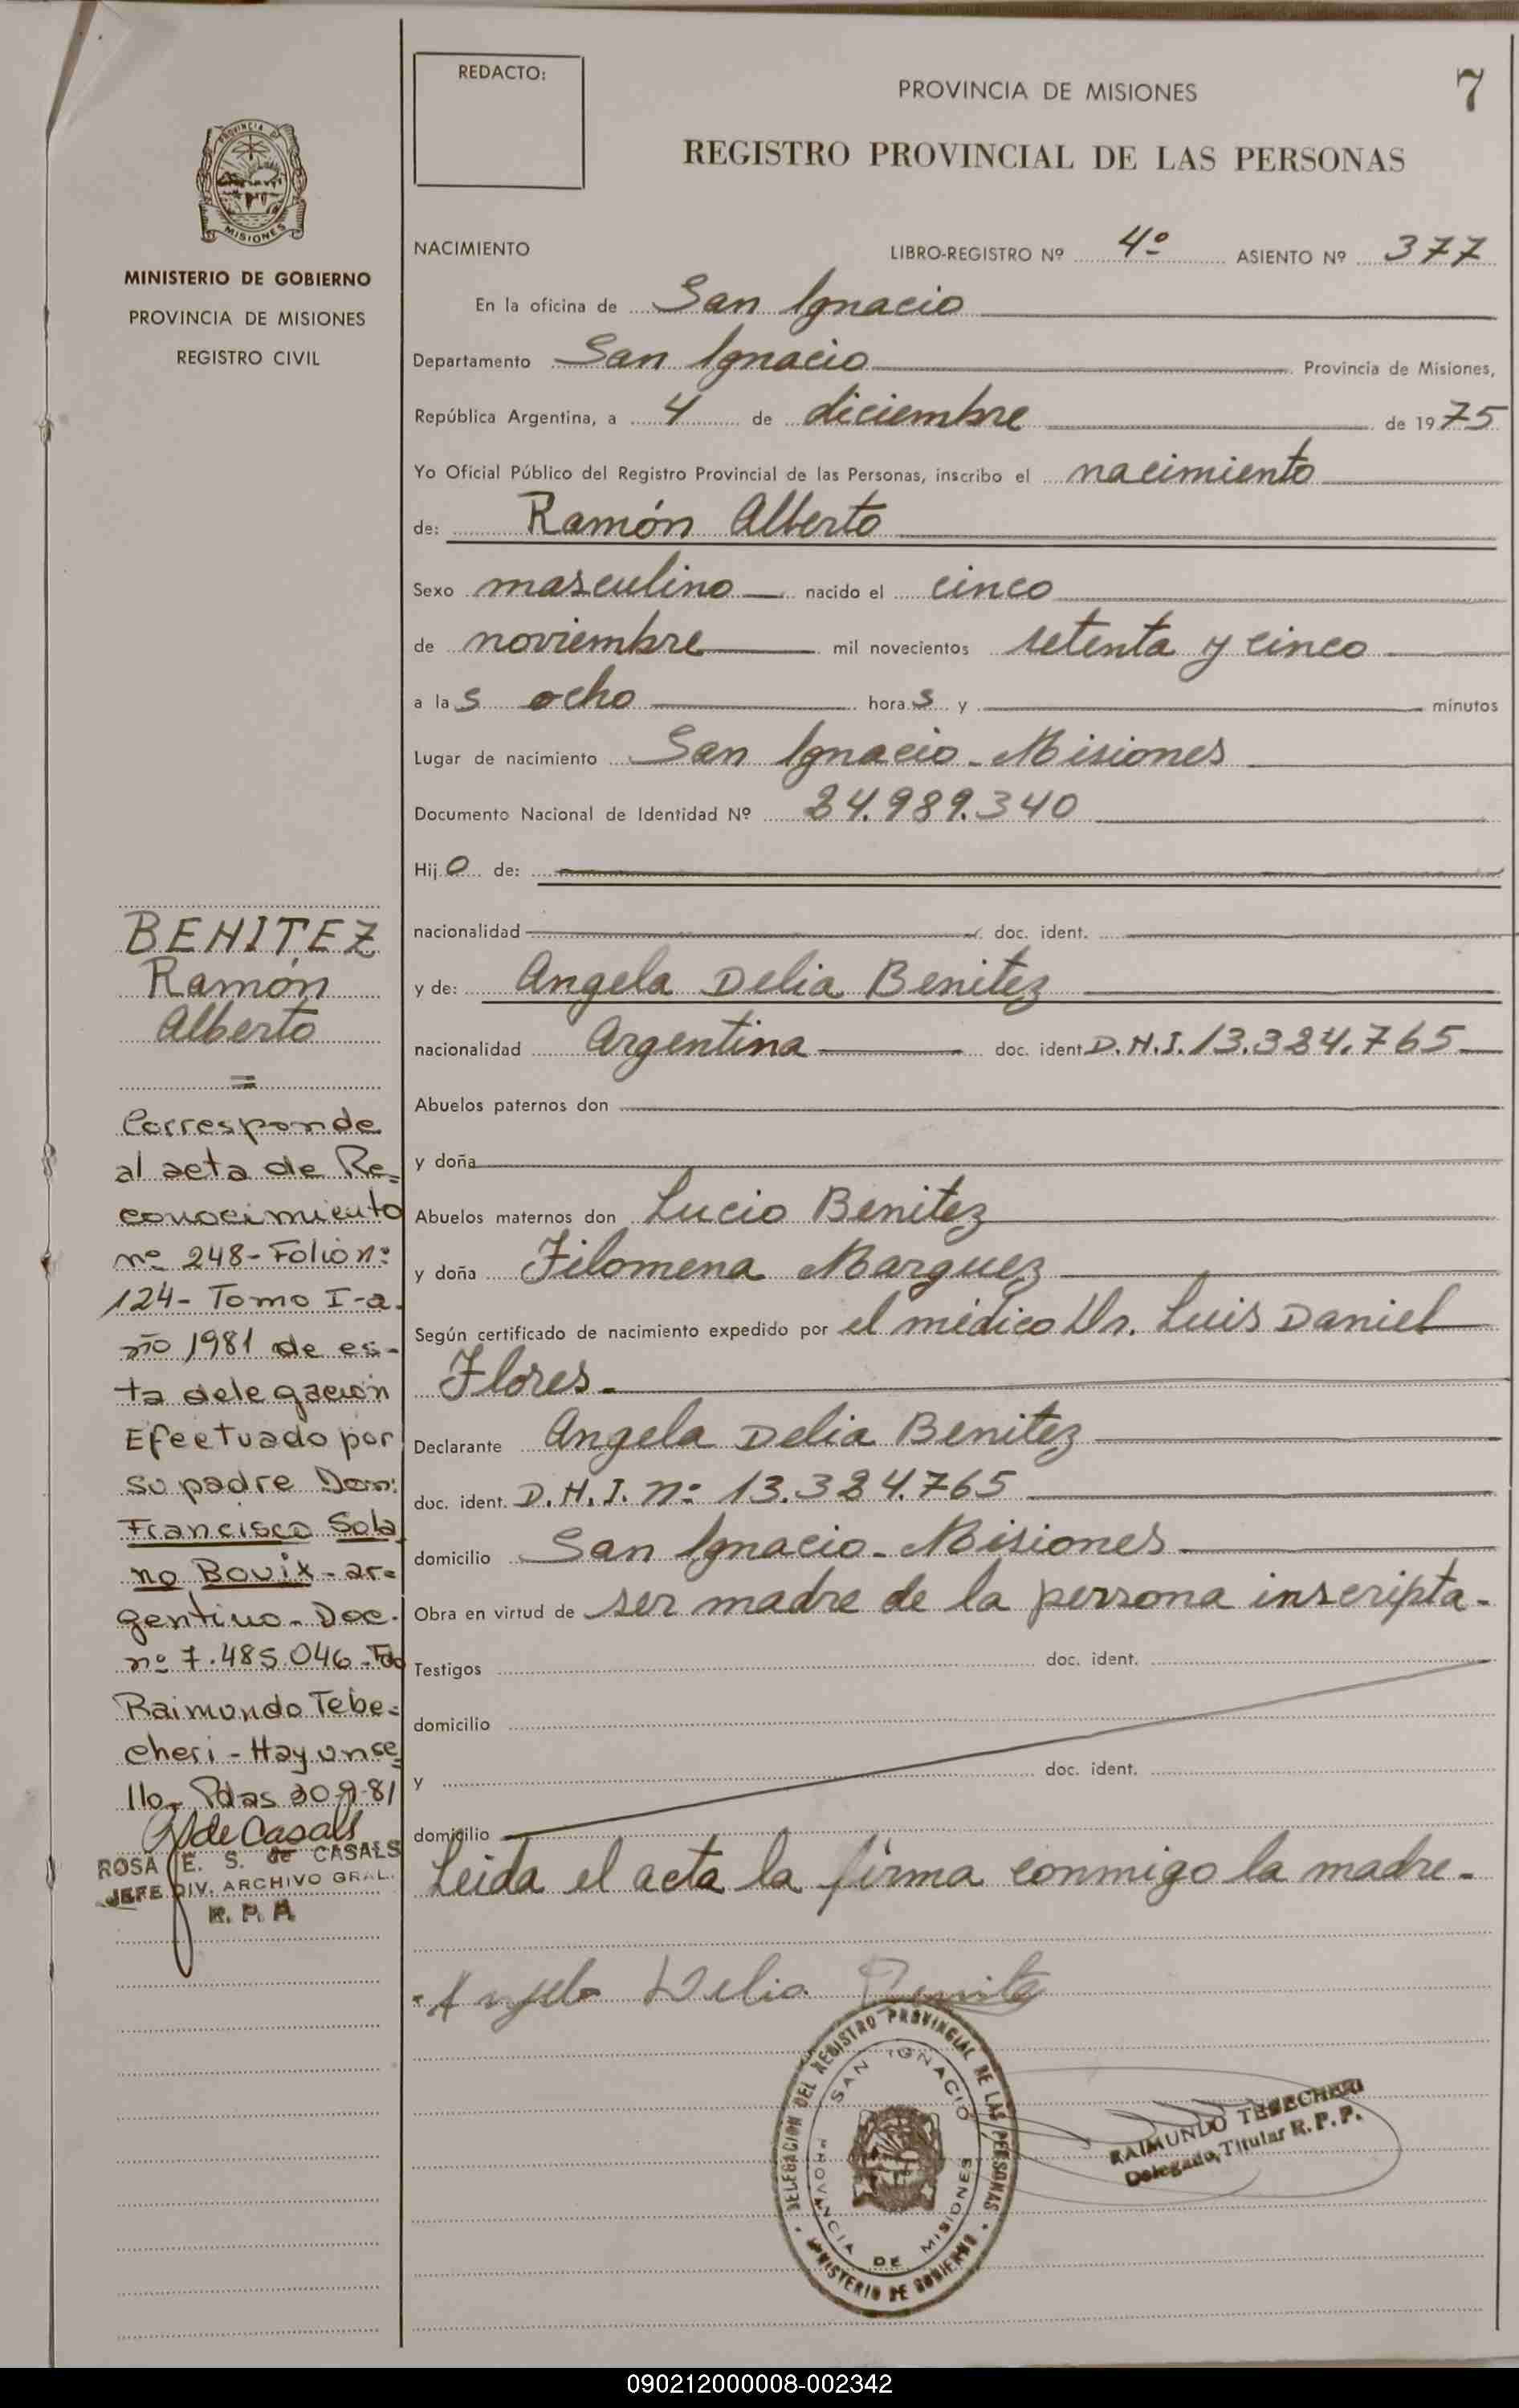 REDACTO:
PROVINCIA DE MISIONES
7
REGISTRO PROVINCIAL DE LAS PERSONAS
PROVINCIA DE
MISIONES
MINISTERIO DE GOBIERNO
PROVINCIA DE MISIONES
REGISTRO CIVIL
NACIMIENTO
LIBRO-REGISTRO Nº 4º ASIENTO Nº 377
En la oficina de San Ignacio
Departamento San Ignacio Provincia de Misiones,
República Argentina, a 4 de diciembre de 1975
Yo Oficial Público del Registro Provincial de las Personas, inscribo el nacimiento
de: Ramón Alberto
Sexo masculino nacido el cinco
de noviembre mil novecientos setenta y cinco
a las ocho horas y minutos
Lugar de nacimiento San Ignacio - Misiones
Documento Nacional de Identidad Nº 24.989.340
Hijo de:
nacionalidad doc. ident.
y de: Angela Delia Benitez
nacionalidad Argentina doc. ident D.N.I. 13.324.765
Abuelos paternos don
y doña
Abuelos maternos don Lucio Benitez
y doña Filomena Marquez
Según certificado de nacimiento expedido por el médico Dr. Luis Daniel
Flores.
Declarante Angela Delia Benitez
doc. ident. D.N.I. nº 13.324.765
domicilio San Ignacio - Misiones
Obra en virtud de ser madre de la persona inscripta.
Testigos doc. ident.
domicilio
y doc. ident.
domicilio
Leida el acta la firma conmigo la madre.
Angela Delia Benitez
BENITEZ
Ramón
Alberto
=
Corresponde
al acta de Re=
conocimiento
nº 248 - Folio nº
124 - Tomo I - a
ño 1981 de es-
ta delegación
Efectuado por
su padre Don:
Francisco Sola
no Bouix - ar=
gentino - Doc.
nº 7.485.046 - Fdo
Raimundo Tebe=
cheri - Hay un se
llo - Pdas 30-9-81
R de Casals
ROSA E. S. de CASALS
JEFE DIV. ARCHIVO GRAL.
R. P. P.
DELEGACION DEL REGISTRO PROVINCIAL DE LAS PERSONAS
SAN IGNACIO
PROVINCIA DE MISIONES
MINISTERIO DE GOBIERNO
RAIMUNDO TEBECHERI
Delegado Titular R. P. P.
090212000008-002342